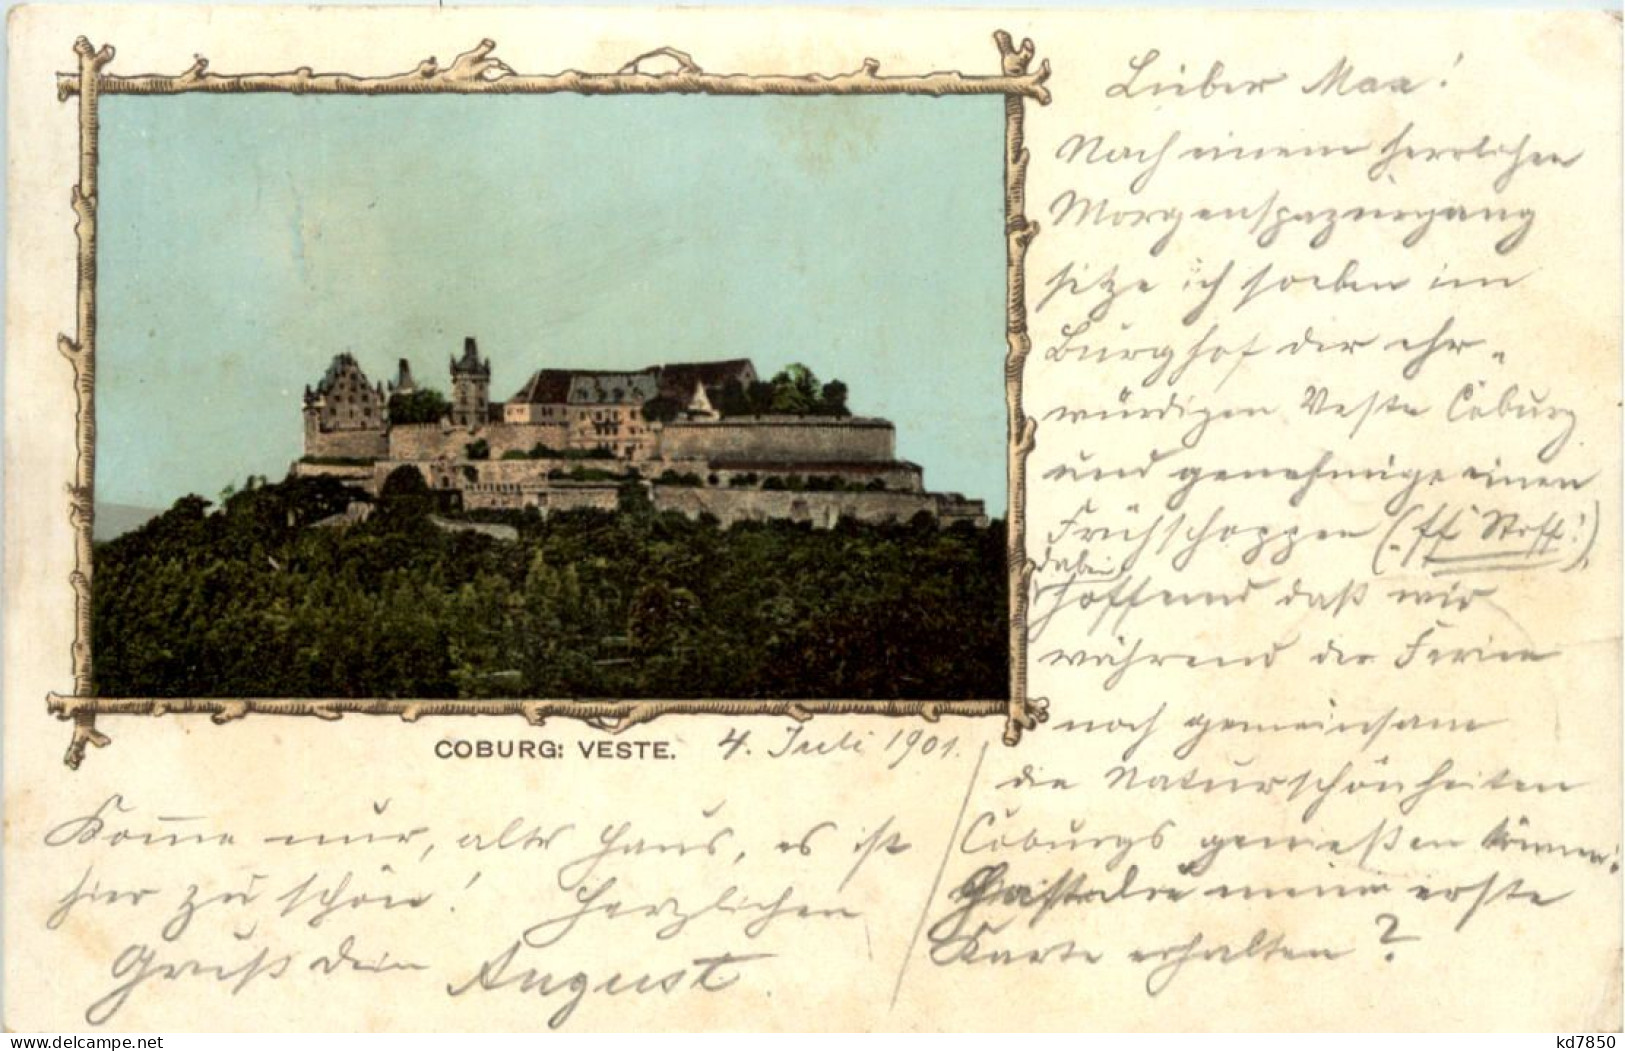 COBURG: VESTE. 4. Juli 1901.
Lieber Max!
Nach einem herrlichen
Morgenspaziergang
sitze ich soeben im
Burghof der ehr-
würdigen Veste Coburg
und genehmige einen
Frühschoppen (ff Stoff!)
dabei
hoffend daß wir
während der Ferien
noch gemeinsam
die Naturschönheiten
Coburgs genießen können.
Hast du meine erste
Karte erhalten?
Kom̅e nur, altes Haus, es ist
hier zu schön! Herzlichen
Gruß dein August.
www.delcampe.net
kd7850